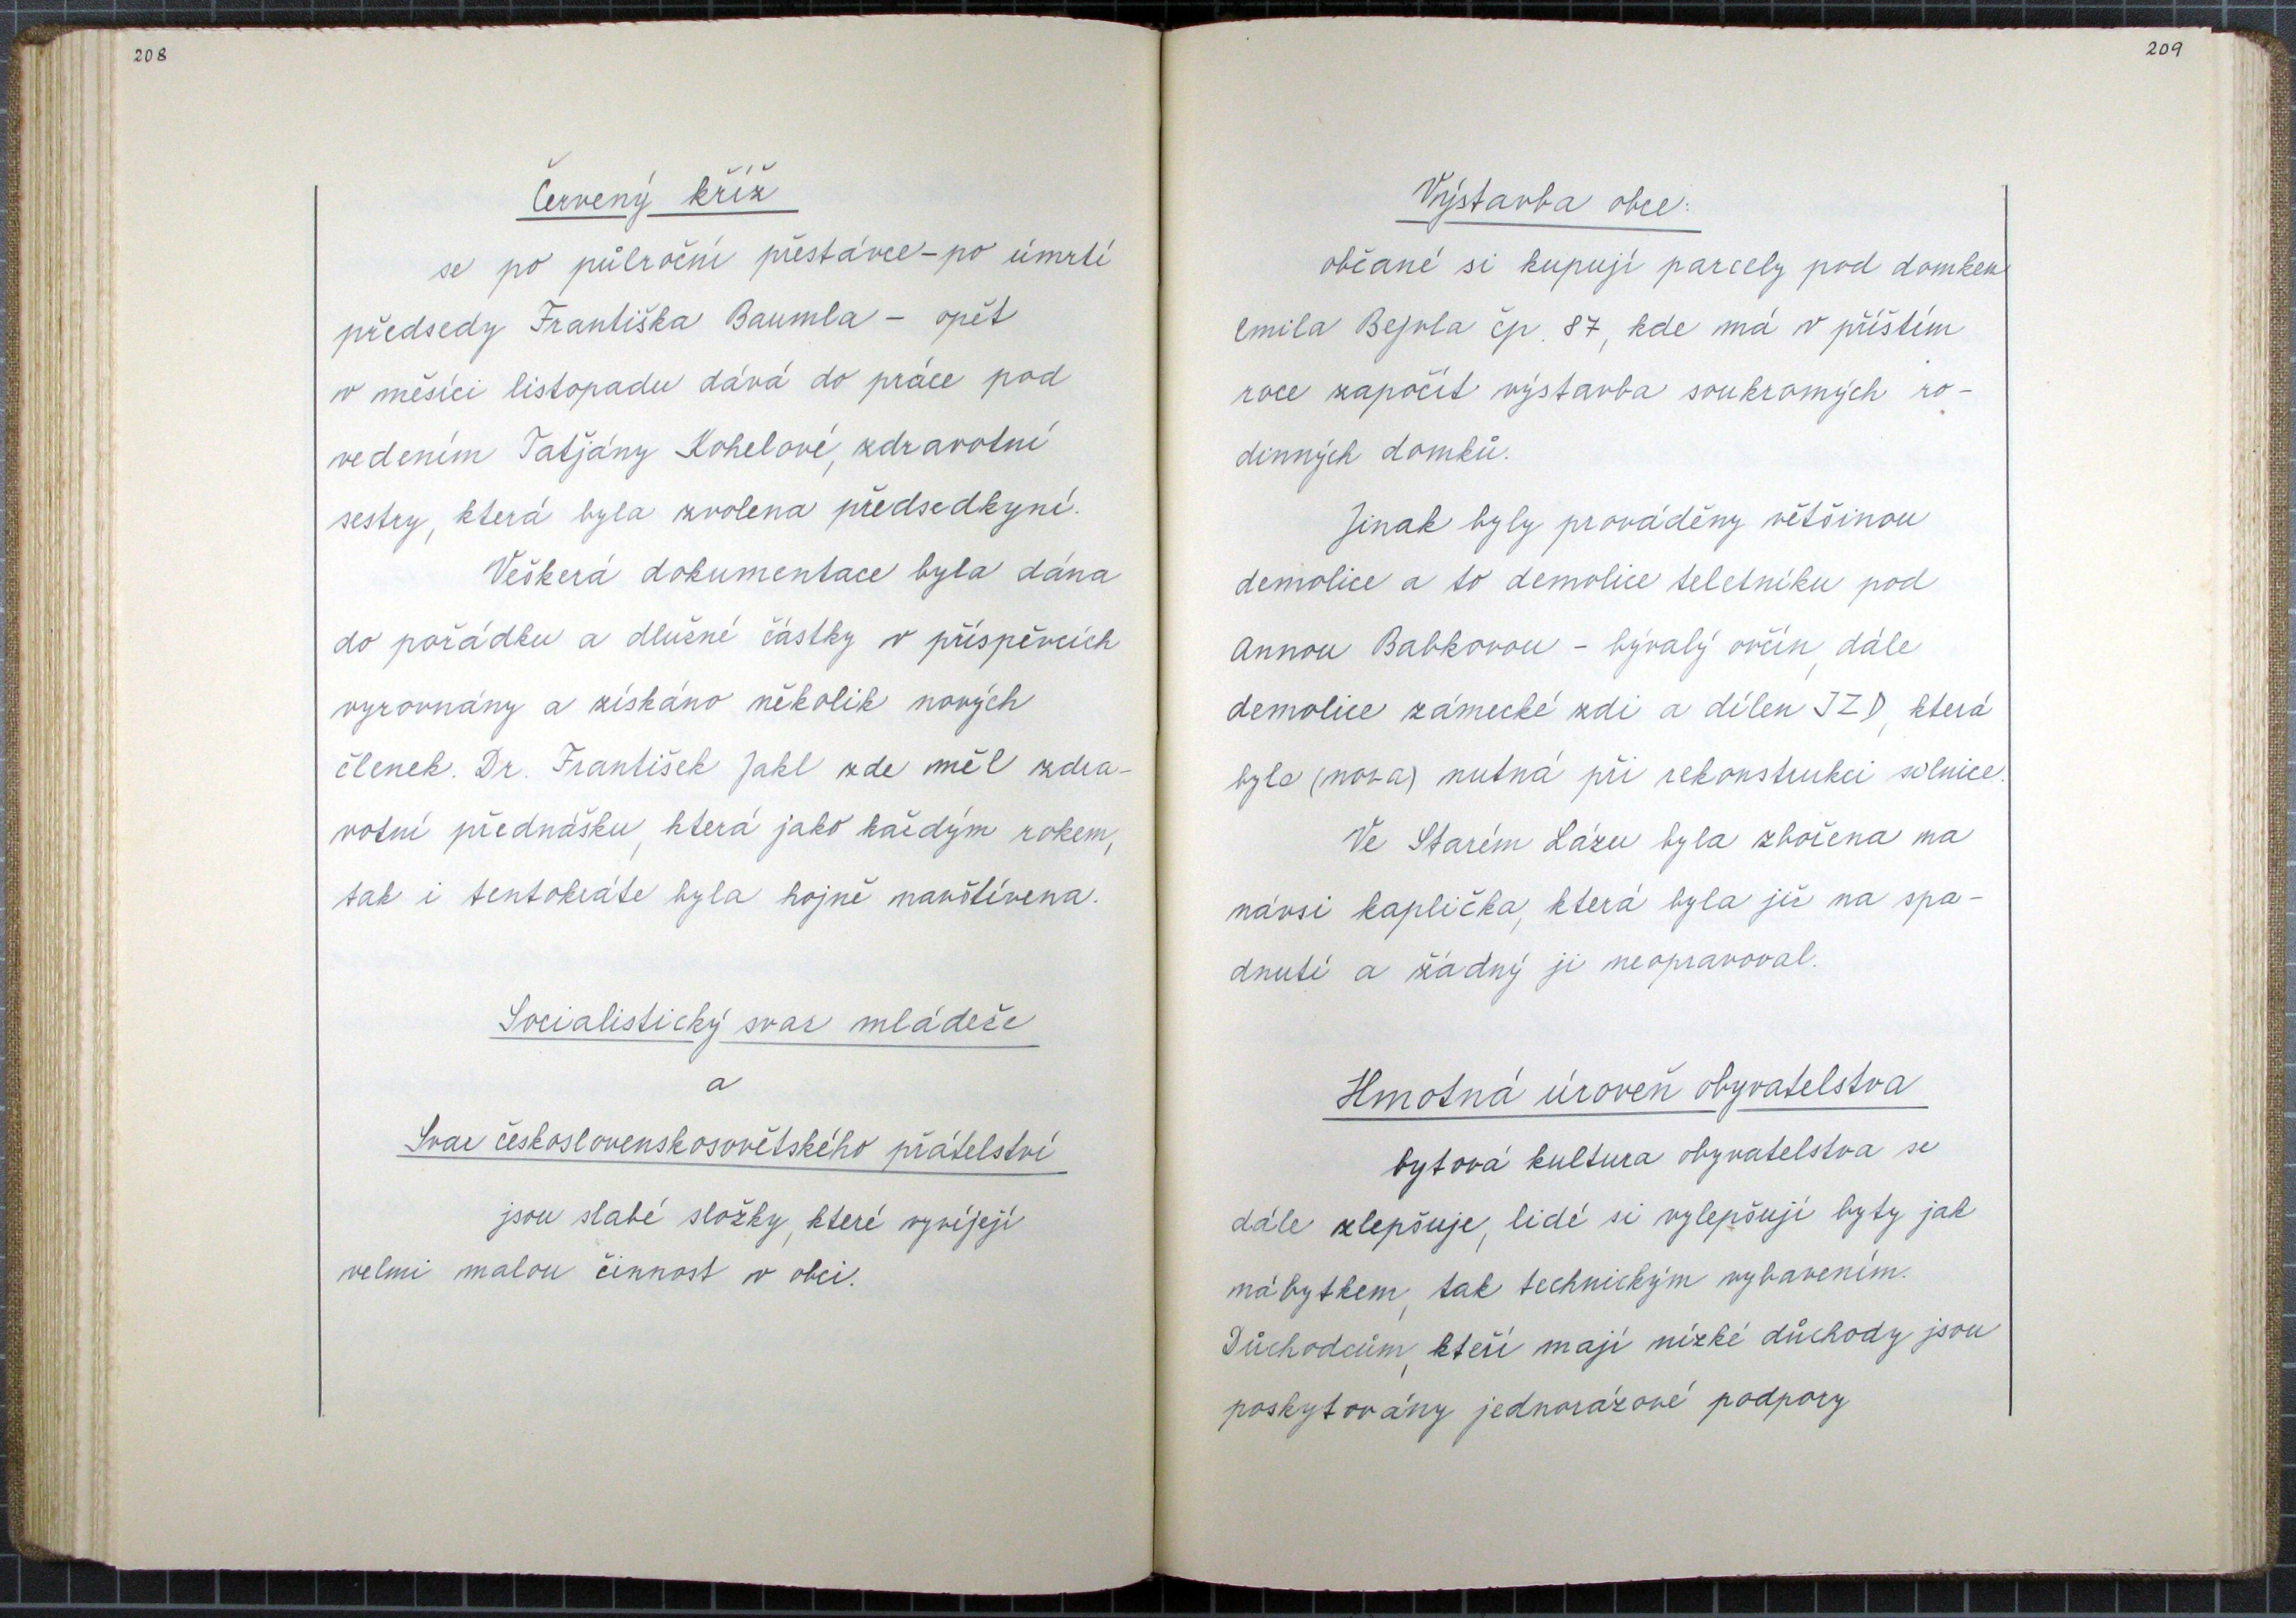 208
Červený kříž
se po půlroční přestávce - po úmrtí
předsedy Františka Baumla - opět
v měsíci listopadu dává do práce pod
vedením Taťjány Kohelové, zdravotní
sestry, která byla zvolena předsedkyní.
Veškerá dokumentace byla dána
do pořádku a dlužné částky v příspěvcích
vyrovnány a získáno několik nových
členek. Dr. František Jakl zde měl zdra-
votní přednášku, která jako každým rokem,
tak i tentokráte byla hojně navštívena.
Socialistický svaz mládeže
a
Svaz československosovětského přátelství
jsou slabé složky, které vyvíjejí
velmi malou činnost v obci.
209
Výstavba obce:
občané si kupují parcely pod domkem
Emila Bejvla čp. 87, kde má v příštím
roce započít výstavba soukromých ro-
dinných domků.
Jinak byly prováděny většinou
demolice a to demolice teletníku pod
Annou Babkovou - bývalý ovčín, dále
demolice zámecké zdi a dílen JZD, která
byla (nova) nutná při rekonstrukci silnice.
Ve Starém Lázu byla zbořena na
návsi kaplička, která byla již na spa-
dnutí a žádný ji neopravoval.
Hmotná úroveň obyvatelstva
bytová kultura obyvatelstva se
dále zlepšuje, lidé si vylepšují byty jak
nábytkem, tak technickým vybavením.
Důchodcům, kteří mají nízké důchody jsou
poskytovány jednorázové podpory